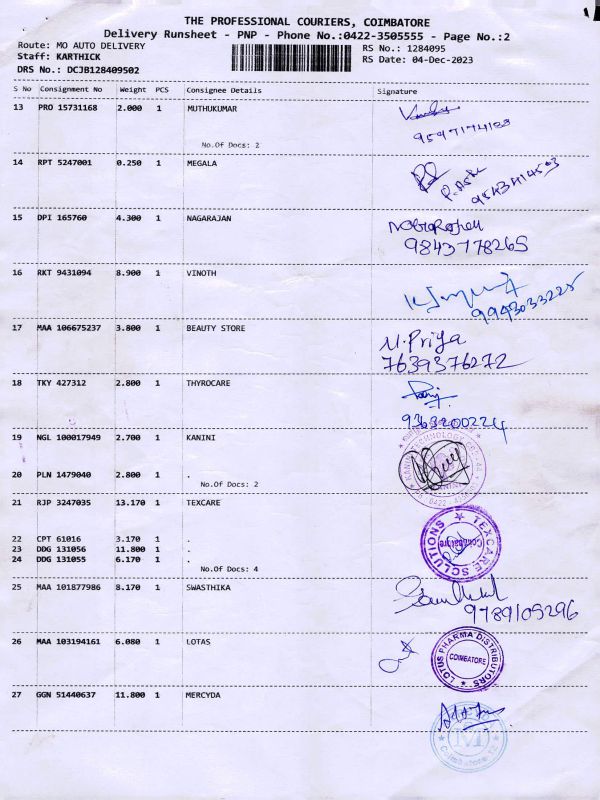 THE PROFESSIONAL COURIERS, COIMBATORE
Delivery Runsheet - PNP - Phone No.:0422-3505555 - Page No.:2
Route: MO AUTO DELIVERY RS No.: 1284095
Staff: KARTHICK RS Date: 04-Dec-2023
DRS No.: DCJB128409502
S No Consignment No Weight PCS Consignee Details Signature
13 PRO 15731168 2.000 1 MUTHUKUMAR
No.Of Docs: 2
14 RPT 5247001 0.250 1 MEGALA
15 DPI 165760 4.300 1 NAGARAJAN
9843778265
16 RKT 9431094 8.900 1 VINOTH
9943033225
17 MAA 106675237 3.800 1 BEAUTY STORE
M.Priya
7639376272
18 TKY 427312 2.800 1 THYROCARE
9363200224
19 NGL 100017949 2.700 1 KANINI
20 PLN 1479040 2.800 1 .
No.Of Docs: 2
21 RJP 3247035 13.170 1 TEXCARE
TEXCARE SOLUTIONS
Coimbatore
22 CPT 61016 3.170 1 .
23 DDG 131056 11.800 1 .
24 DDG 131055 6.170 1 .
No.Of Docs: 4
25 MAA 101877986 8.170 1 SWASTHIKA
9789105296
26 MAA 103194161 6.080 1 LOTAS
LOTUS PHARMA DISTRIBUTORS
COIMBATORE
27 GGN 51440637 11.800 1 MERCYDA